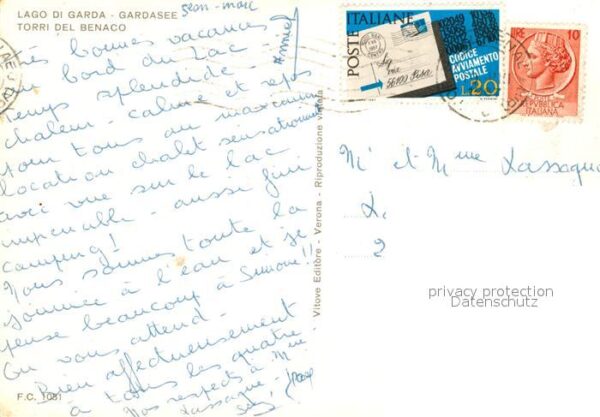 LAGO DI GARDA - GARDASEE
TORRI DEL BENACO
Jean-Marc
Très bonnes vacances
au bord du Lac
Temps splendide -
chaleur calme et repos
pour tous au maximum
location chalet sensationnel
avec vue sur le lac
imprenable - aussi fini
camping!
Nous sommes toute la
journée à l'eau et je
pense beaucoup à Simone!!
On vous attend -
Bien affectueusement
à tous les quatre -
Nos respects à Mme
Lassagne -
F.C. 1081
Vitove Editore - Verona - Riproduzione vietata
POSTE ITALIANE
CODICE
AVVIAMENTO
POSTALE
56100 Pisa
L.20
LIRE 10
REPUBBLICA
ITALIANA
Mr et Mme Lassagne
L.
2
privacy protection
Datenschutz